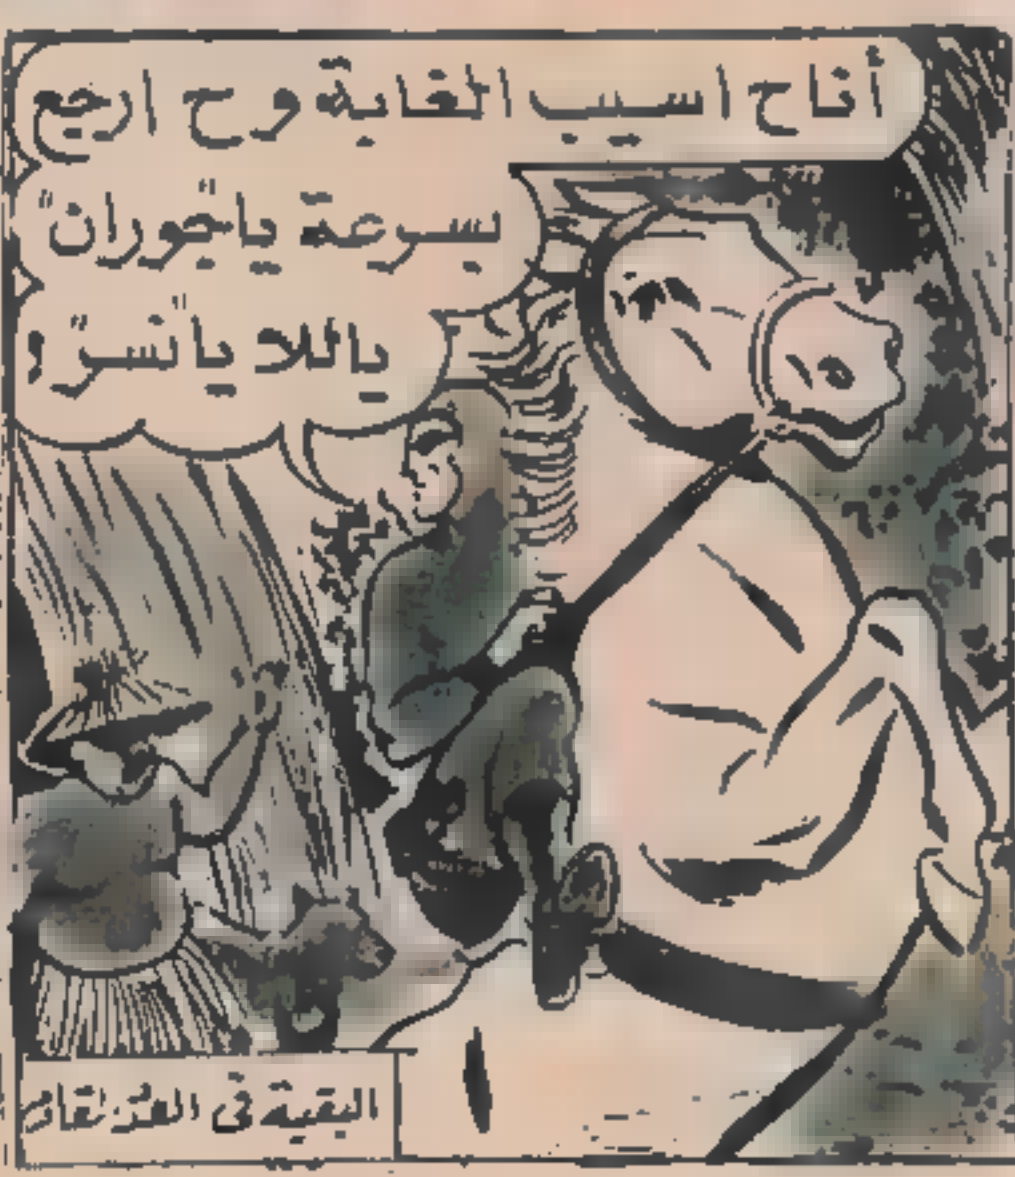 أناح اسيب الغابة وح ارجع
بسرعة يا"جوران"
ياللا يا"نسر"!
البقية فى العدد القادم